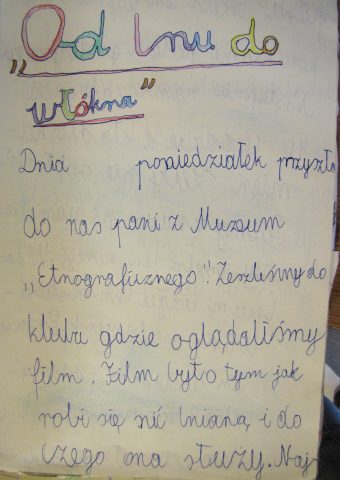 „Od lnu do
włókna”
Dnia poniedziałek przyszła
do nas pani z Muzeum
„Etnograficznego". Zeszliśmy do
klubu gdzie oglądaliśmy
film. Film był o tym jak
robi się nić lnianą i do
czego ona służy. Naj-